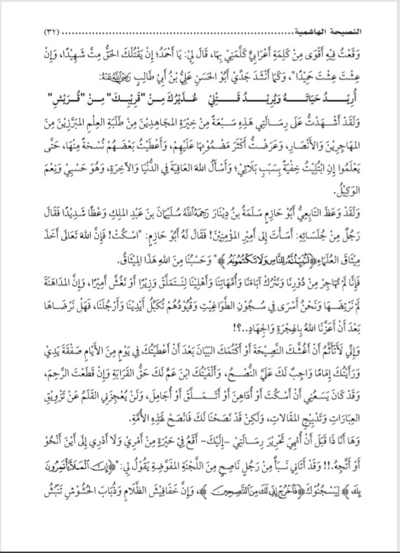 النصيحة الهاشمية ........................................ (٣٢)
وَقَعْتُ فِيهِ أَقْوَى مِنْ كَلِمَةِ أَعْرَابِيٍّ كَلَّمَنِي بِهَا، قَالَ لِيَ: يَا أَحْمَدُ؛ إِنْ يَقْتُلْكَ الْحَقُّ مِتَّ شَهِيْدًا، وَإِنْ
عِشْتَ عِشْتَ حَمِيْدًا"، وَكَمَا أَنْشَدَ جَدِّي أَبُو الْحَسَنِ عَلِيُّ بْنُ أَبِي طَالِبٍ رَضِيَ اللَّهُ عَنْهُ:
أُرِيْدُ حَيَاتَهُ وَيُرِيْدُ قَتْلِي عُذَيْرُكَ مِنْ "قَرِيبِكَ" مِنْ "قُرَيْشِ"
وَلَقَدْ أَشْهَدْتُ عَلَى رِسَالَتِي هَذِهِ سَبْعَةً مِنْ خِيْرَةِ الْمُجَاهِدِيْنَ مِنْ طَلَبَةِ الْعِلْمِ الْمُبَرَّزِيْنَ مِنَ
الْمُهَاجِرِيْنَ وَالْأَنْصَارِ، وَعَرَضْتُ أَكْثَرَ مَضْمُوْنِهَا عَلَيْهِمْ، وَأَعْطَيْتُ بَعْضَهُمْ نُسْخَةً مِنْهَا، حَتَّى
يَعْلَمُوا إِنِ ابْتُلِيْتُ خِفْيَةً بِسَبَبِ بَلَائِيْ؛ وَأَسْأَلُ اللهَ الْعَافِيَةَ فِي الدُّنْيَا وَالْآخِرَةِ، وَهُوَ حَسْبِيْ وَنِعْمَ
الْوَكِيْلُ.
وَلَقَدْ وَعَظَ التَّابِعِيُّ أَبُو حَازِمٍ سَلَمَةُ بْنُ دِيْنَارٍ رَحِمَهُ اللَّهُ سُلَيْمَانَ بْنَ عَبْدِ الْمَلِكِ وَعْظًا شَدِيْدًا فَقَالَ
رَجُلٌ مِنْ جُلَسَائِهِ: أَسَأْتَ إِلَى أَمِيْرِ الْمُؤْمِنِيْنَ! فَقَالَ لَهُ أَبُو حَازِمٍ: "اسْكُتْ! فَإِنَّ اللهَ تَعَالَى أَخَذَ
مِيْثَاقَ الْعُلَمَاءِ ﴿لَتُبَيِّنُنَّهُ لِلنَّاسِ وَلَا تَكْتُمُونَهُ﴾" وَحَسْبُنَا مِنَ اللهِ هَذَا الْمِيْثَاقُ.
فَإِنَّا لَمْ نُهَاجِرْ مِنْ دُوْرِنَا وَنَتْرُكْ آبَاءَنَا وَأُمَّهَاتِنَا وَأَهْلِيْنَا لِنَتَمَلَّقَ وَزِيْرًا أَوْ نَغُشَّ أَمِيْرًا، وَإِنَّ الْمُدَاهَنَةَ
لَمْ نَرْتَضِهَا وَنَحْنُ أَسْرَى فِي سُجُوْنِ الطَّوَاغِيْتِ وَقُيُوْدُهُمْ تُكَبِّلُ أَيْدِيْنَا وَأَرْجُلَنَا، فَهَلْ نَرْضَاهَا
بَعْدَ أَنْ أَعَزَّنَا اللهُ بِالْهِجْرَةِ وَالْجِهَادِ..؟!
وَإِنِّي لَأَتَأَثَّمُ أَنْ أَغُشَّكَ النَّصِيْحَةَ أَوْ أَكْتُمَكَ الْبَيَانَ بَعْدَ أَنْ أَعْطَيْتُكَ فِي يَوْمٍ مِنَ الْأَيَّامِ صَفْقَةَ يَدِيْ
وَرَأَيْتُكَ إِمَامًا وَاجِبٌ لَكَ عَلَيَّ النُّصْحُ، وَأَلْفَيْتُكَ ابْنَ عَمٍّ لَكَ حَقُّ الْقَرَابَةِ وَإِنْ قَطَعْتَ الرَّحِمَ،
وَقَدْ كَانَ يَسَعُنِي أَنْ أَسْكُتَ أَوْ أُدَاهِنَ أَوْ أَتَمَلَّقَ أَوْ أُجَامِلَ، وَلَنْ يُعْجِزَنِي الْقَلَمُ عَنْ تَزْوِيْقِ
الْعِبَارَاتِ وَتَدْبِيْجِ الْمَقَالَاتِ، وَلَكِنْ قَدْ نَصَحْنَا لَكَ فَانْصَحْ لِهَذِهِ الْأُمَّةِ.
وَهَا أَنَا ذَا قَبْلَ أَنْ أُنْهِيَ تَحْرِيْرَ رِسَالَتِيْ -إِلَيْكَ- أَقَعُ فِي حَيْرَةٍ مِنْ أَمْرِيْ وَلَا أَدْرِيْ إِلَى أَيْنَ أَنْحُوْ
أَوْ أَتَّجِهُ.!! وَقَدْ أَتَانِي نَبَأٌ مِنْ رَجُلٍ نَاصِحٍ مِنَ اللَّجْنَةِ الْمُفَوَّضَةِ يَقُوْلُ لِي: ﴿إِنَّ الْمَلَأَ يَأْتَمِرُونَ
بِكَ﴾ لِيَسْجُنُوْكَ ﴿فَاخْرُجْ إِنِّي لَكَ مِنَ النَّاصِحِينَ﴾، وَإِنَّ خَفَافِيْشَ الظَّلَامِ وَذُبَابَ الْحُشُوْشِ تَنْبُشُ